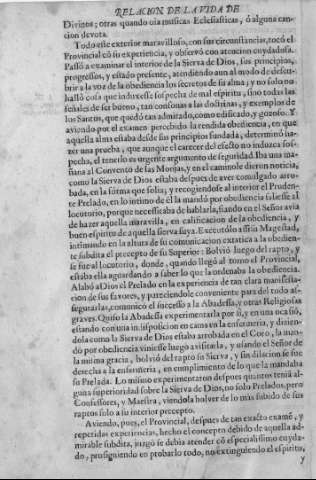 RELACION DE LA VIDA DE
Divinos; otras quando oìa musicas Eclesiasticas, ò alguna can-
cion devota.
Todo este exterior maravilloso, con sus circunstancias, tocó el
Provincial cõ su experiencia, y observò con atencion cuydadosa.
Passò a examinar el interior de la Sierva de Dios, sus principios,
progressos, y estado presente, atendiendo aun al modo de descu-
brir a la voz de la obediencia los secretos de su alma; y no solo no
hallò cosa que induxesse sospecha de mal espiritu, sino todas las
señales de ser bueno, tan consonas a las doctrinas, y exemplos de
los Santos, que quedò tan admirado, como edificado, y gozoso. Y
aviendo por el examen percebido la rendida obediencia, en que
aquella alma estaba desde sus principios fundada, determinò ha-
zer una prueba, que aunque el carecer del efecto no induzca sos-
pecha, el tenerlo es urgente argumento de seguridad. Iba una ma-
ñana al Convento de las Monjas, y en el camino le dieron noticia,
como la Sierva de Dios estaba despues de aver comulgado arro-
bada, en la forma que solia; y recogiendose al interior el Pruden-
te Prelado, en lo intimo de èl la mandò por obediencia saliesse al
locutorio, porque necessitaba de hablarla, fiando en el Señor avia
de hazer aquella maravilla, en calificacion de la obediencia, y
buen espiritu de aquella sierva suya. Executòlo assi su Magestad,
intimando en la altura de su comunicacion extatica a la obedien-
te subdita el precepto de su Superior: bolviò luego del rapto, y
se fue al locutorio, donde, quando llegò al torno el Provincial,
estaba ella aguardando a saber lo que la ordenaba la obediencia.
Alabò a Dios el Prelado en la experiencia de tan clara manifesta-
cion de sus favores, y pareciendole conveniente para del todo as-
segurarlas, comunicò el sucesso a la Abadessa, y otras Religiosas
graves. Quiso la Abadessa experimentarla por si, y en una ocasiõ,
estando con una indisposicion en cama en la enfermeria, y dizien-
dola como la Sierva de Dios estaba arrobada en el Coro, la man-
dò por obediencia viniesse luego a visitarla, y usando el Señor de
la misma gracia, bolviò del rapto su Sierva, y sin dilacion se fue
derecha a la enfermeria, en cumplimiento de lo que la mandaba
su Prelada. Lo mismo experimentaron despues quantos tenia al-
guna superioridad sobre la Sierva de Dios, no solo Prelados, pero
Confessores, y Maestra, viendola bolver de lo mas subido de sus
raptos solo a su interior precepto.
Aviendo, pues, el Provincial, despues de tan exacto examẽ, y
repetidas experiencias, hecho el concepto debido de aquella ad-
mirable subdita, juzgò se debia atender cõ especialissimo cuyda-
do, prosiguiendo en probarlo todo, no extinguiendo el espiritu,
y